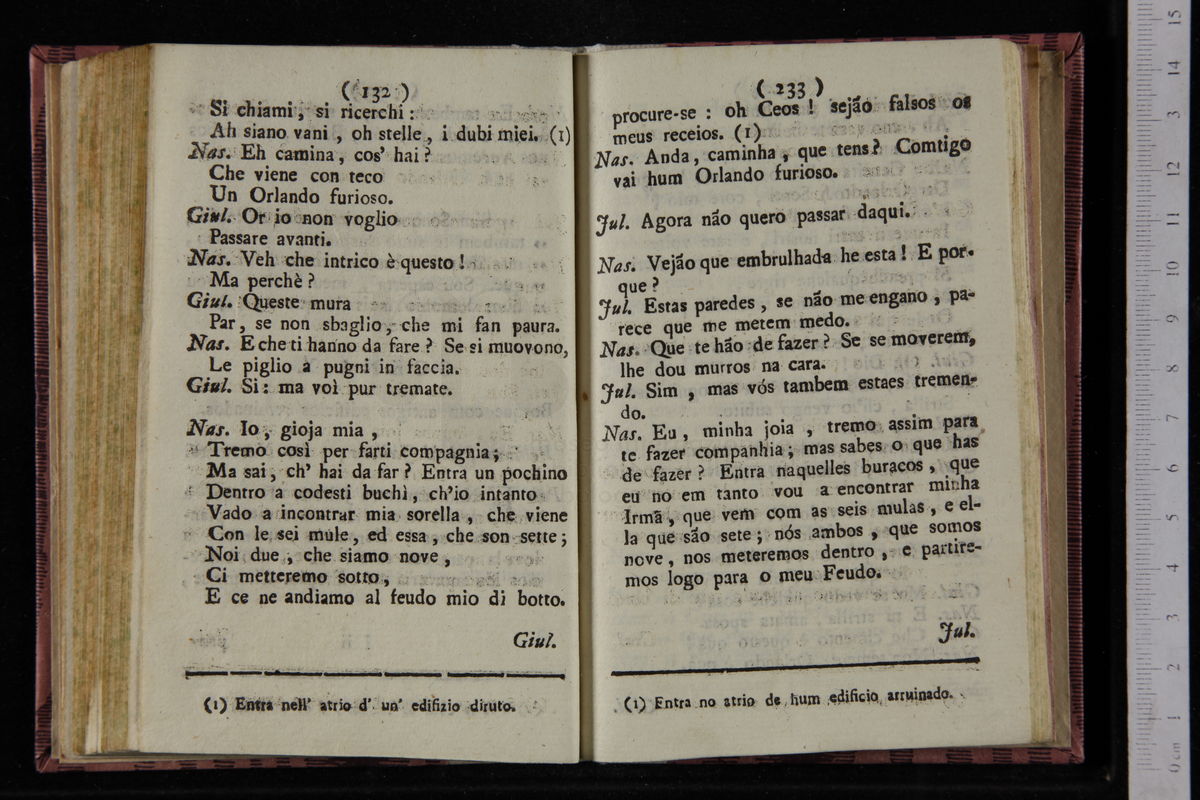 ( 132 )
Si chiami, si ricerchi:
Ah siano vani, oh stelle, i dubi miei. (1)
Nas. Eh camina, cos' hai?
Che viene con teco
Un Orlando furioso.
Giul. Or io non voglio
Passare avanti.
Nas. Veh che intrico è questo!
Ma perchè?
Giul. Queste mura
Par, se non sbaglio, che mi fan paura.
Nas. E che ti hanno da fare? Se si muovono,
Le piglio a pugni in faccia.
Giul. Si: ma voi pur tremate.
Nas. Io, gioja mia,
Tremo così per farti compagnia;
Ma sai, ch' hai da far? Entra un pochino
Dentro a codesti buchi, ch'io intanto
Vado a incontrar mia sorella, che viene
Con le sei mule, ed essa, che son sette;
Noi due, che siamo nove,
Ci metteremo sotto,
E ce ne andiamo al feudo mio di botto.
Giul.
(1) Entra nell' atrio d' un' edifizio diruto.
( 233 )
procure-se: oh Ceos! sejão falsos os
meus receios. (1)
Nas. Anda, caminha, que tens? Comtigo
vai hum Orlando furioso.
Jul. Agora não quero passar daqui.
Nas. Vejão que embrulhada he esta! E por-
que?
Jul. Estas paredes, se não me engano, pa-
rece que me metem medo.
Nas. Que te hão de fazer? Se se moverem,
lhe dou murros na cara.
Jul. Sim, mas vós tambem estaes tremen-
do.
Nas. Eu, minha joia, tremo assim para
te fazer companhia; mas sabes o que has
de fazer? Entra naquelles buracos, que
eu no em tanto vou a encontrar minha
Irmã, que vem com as seis mulas, e el-
la que são sete; nós ambos, que somos
nove, nos meteremos dentro, e partire-
mos logo para o meu Feudo.
Jul.
(1) Entra no atrio de hum edificio arruinado.
0 cm 1 2 3 4 5 6 7 8 9 10 11 12 13 14 15